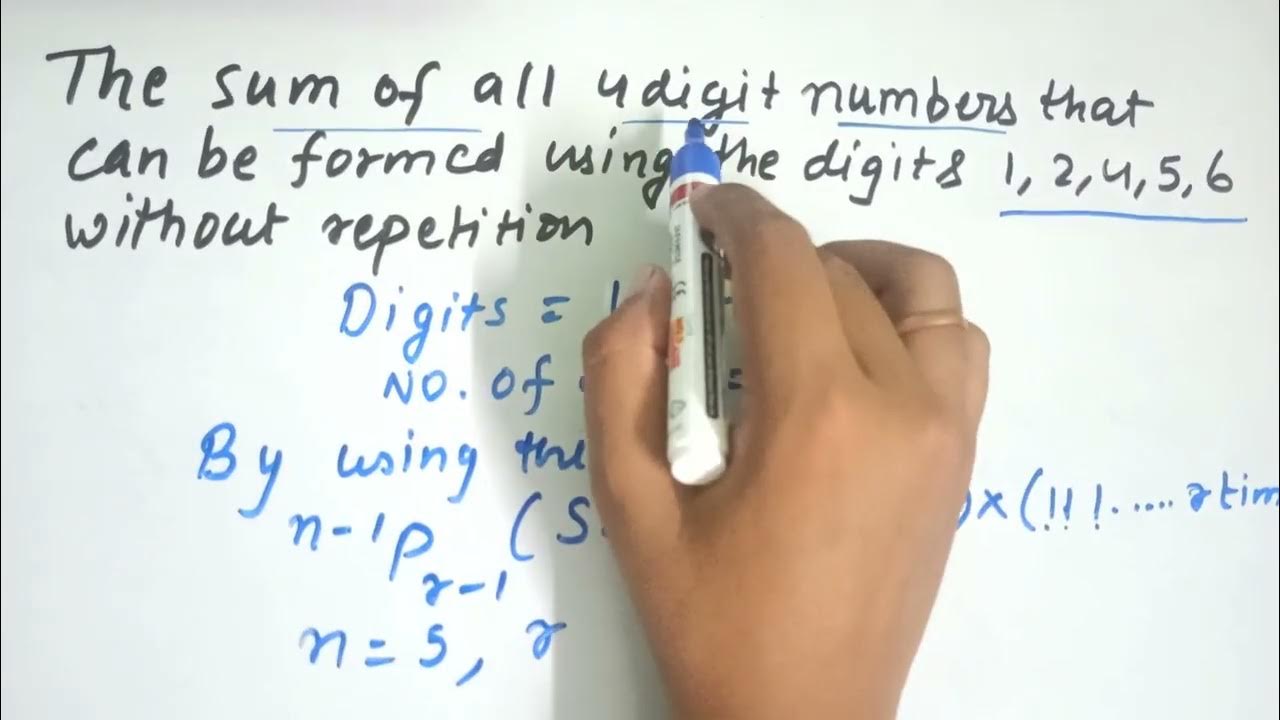 The sum of all 4 digit numbers that
can be formed using the digits 1, 2, 4, 5, 6
without repetition
Digits = 1
NO. of =
By using the
n-1pr-1 (S )x(111.....r tim
n = 5, r